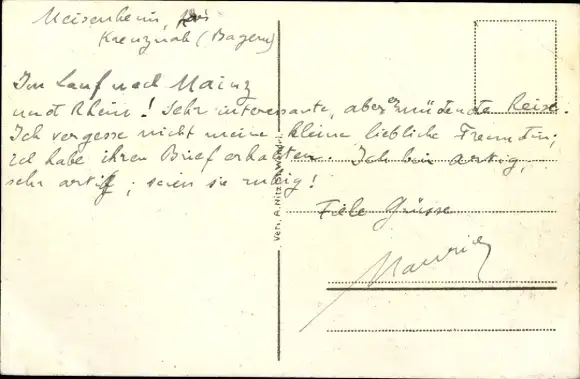 Meisenheim, Kreis
Kreuznah (Bayern)
Im Lauf nach Mainz
undt Rhein! Sehr interessante, aber ermüdende Reise.
Ich vergesse nicht meine kleine liebliche Freundin;
ich habe ihren Brief erhalten. Ich bin artig,
sehr artig; seien sie ruhig!
Fiele Grüsse
Maurice
Verl. A. Nitz